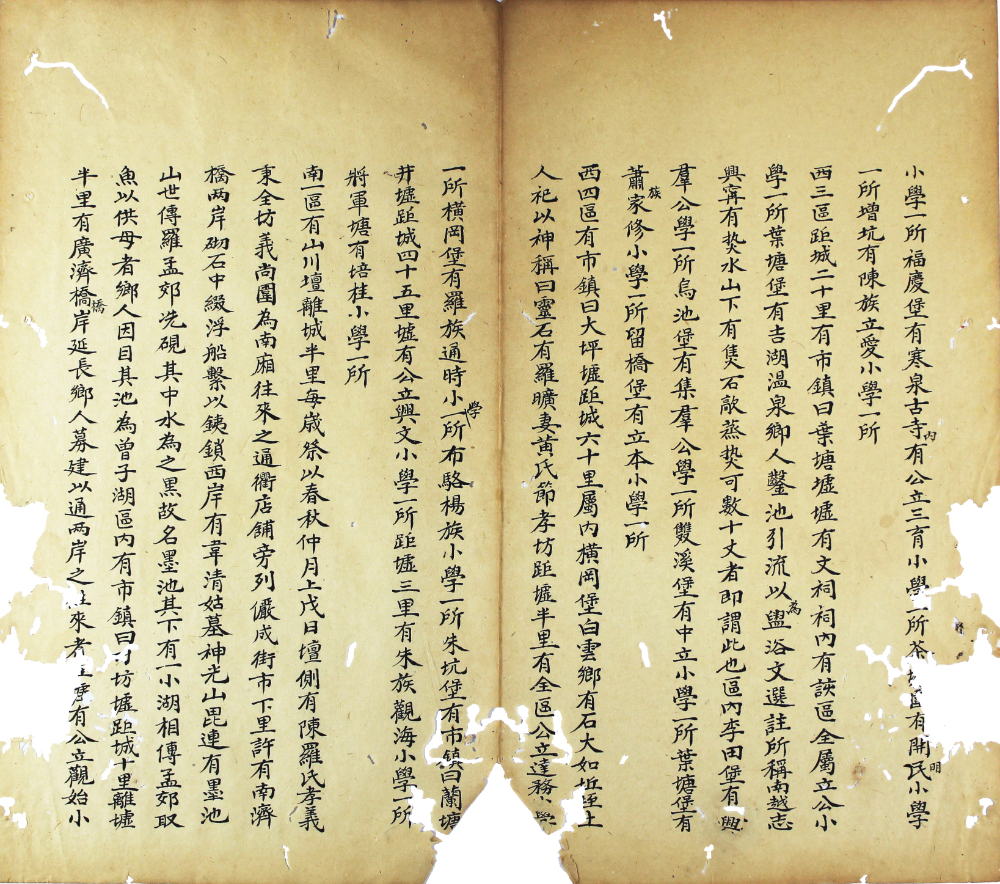 小學一所福慶堡有寒泉古寺內有公立三育小學一所茶有開明民小學
一所增坑有陳族立愛小學一所
西三區距城二十里有市鎮曰葉塘墟墟有文祠祠內有該區全屬立公小
學一所葉塘堡有吉湖溫泉鄉人鑿池引流以為盥洛文選註所稱南越志
興寗有𤍠水山下有焦石歊蒸𤍠可數十丈者即謂此也區內李田堡有興
羣公學一所烏池堡有集羣公學一所雙溪堡有中立小學一所葉塘堡有
蕭族家修小學一所留橋堡有立本小學一所
西四區有市鎮曰大坪墟距城六十里屬內橫岡堡白雲鄉有石大如坵土
人祀以神稱曰靈石有羅曠妻黃氏節孝坊距墟半里有全區公立達務小學
一所橫岡堡有羅族通時小學一所布駱楊族小學一所朱坑堡有市鎮曰蘭塘
井墟距城四十五里墟有公立興文小學一所距墟三里有朱族觀海小學一所
將軍塘有培桂小學一所
南一區有山川壇離城半里每歲祭以春秋仲月上戊日壇側有陳羅氏孝義
秉全坊義尚圍為南廂往來之通衢店舖旁列儼成街市下里許有南濟
橋兩岸砌石中綴浮船繫以銕鎖西岸有韋清姑墓神光山毘連有墨池
山世傳羅孟郊洗硯其中水為之黑故名墨池其下有一小湖相傳孟郊取
魚以供母者鄉人因目其池為曾子湖區內有市鎮曰刁坊墟距城十里離墟
半里有廣濟橋橋岸延長鄉人募建以通兩岸之往來者有公立觀始小